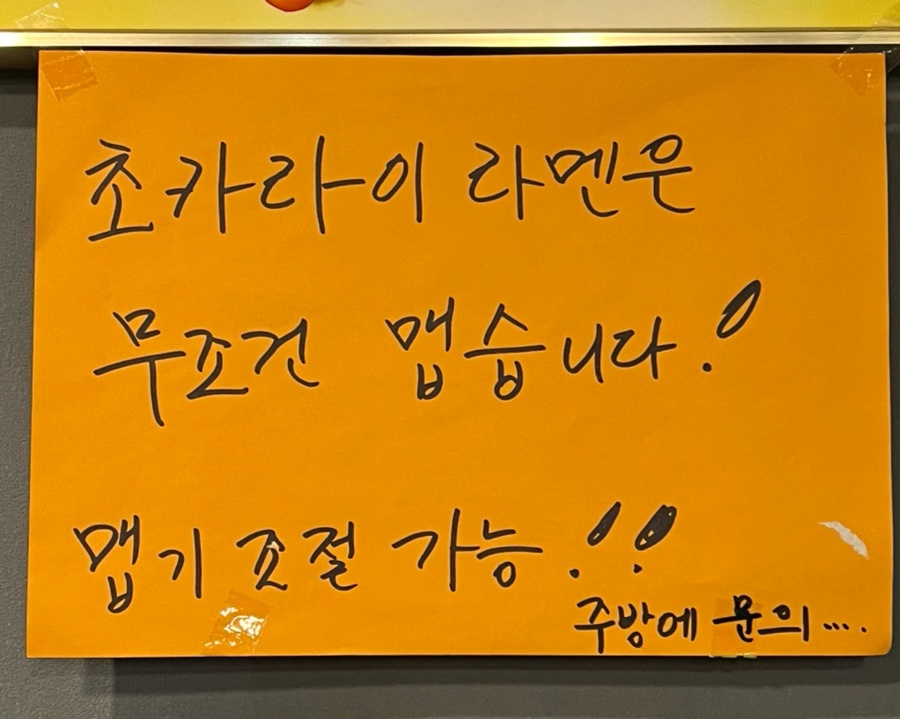 초카라이 라멘은
무조건 맵습니다!
맵기 조절 가능!!
주방에 문의....